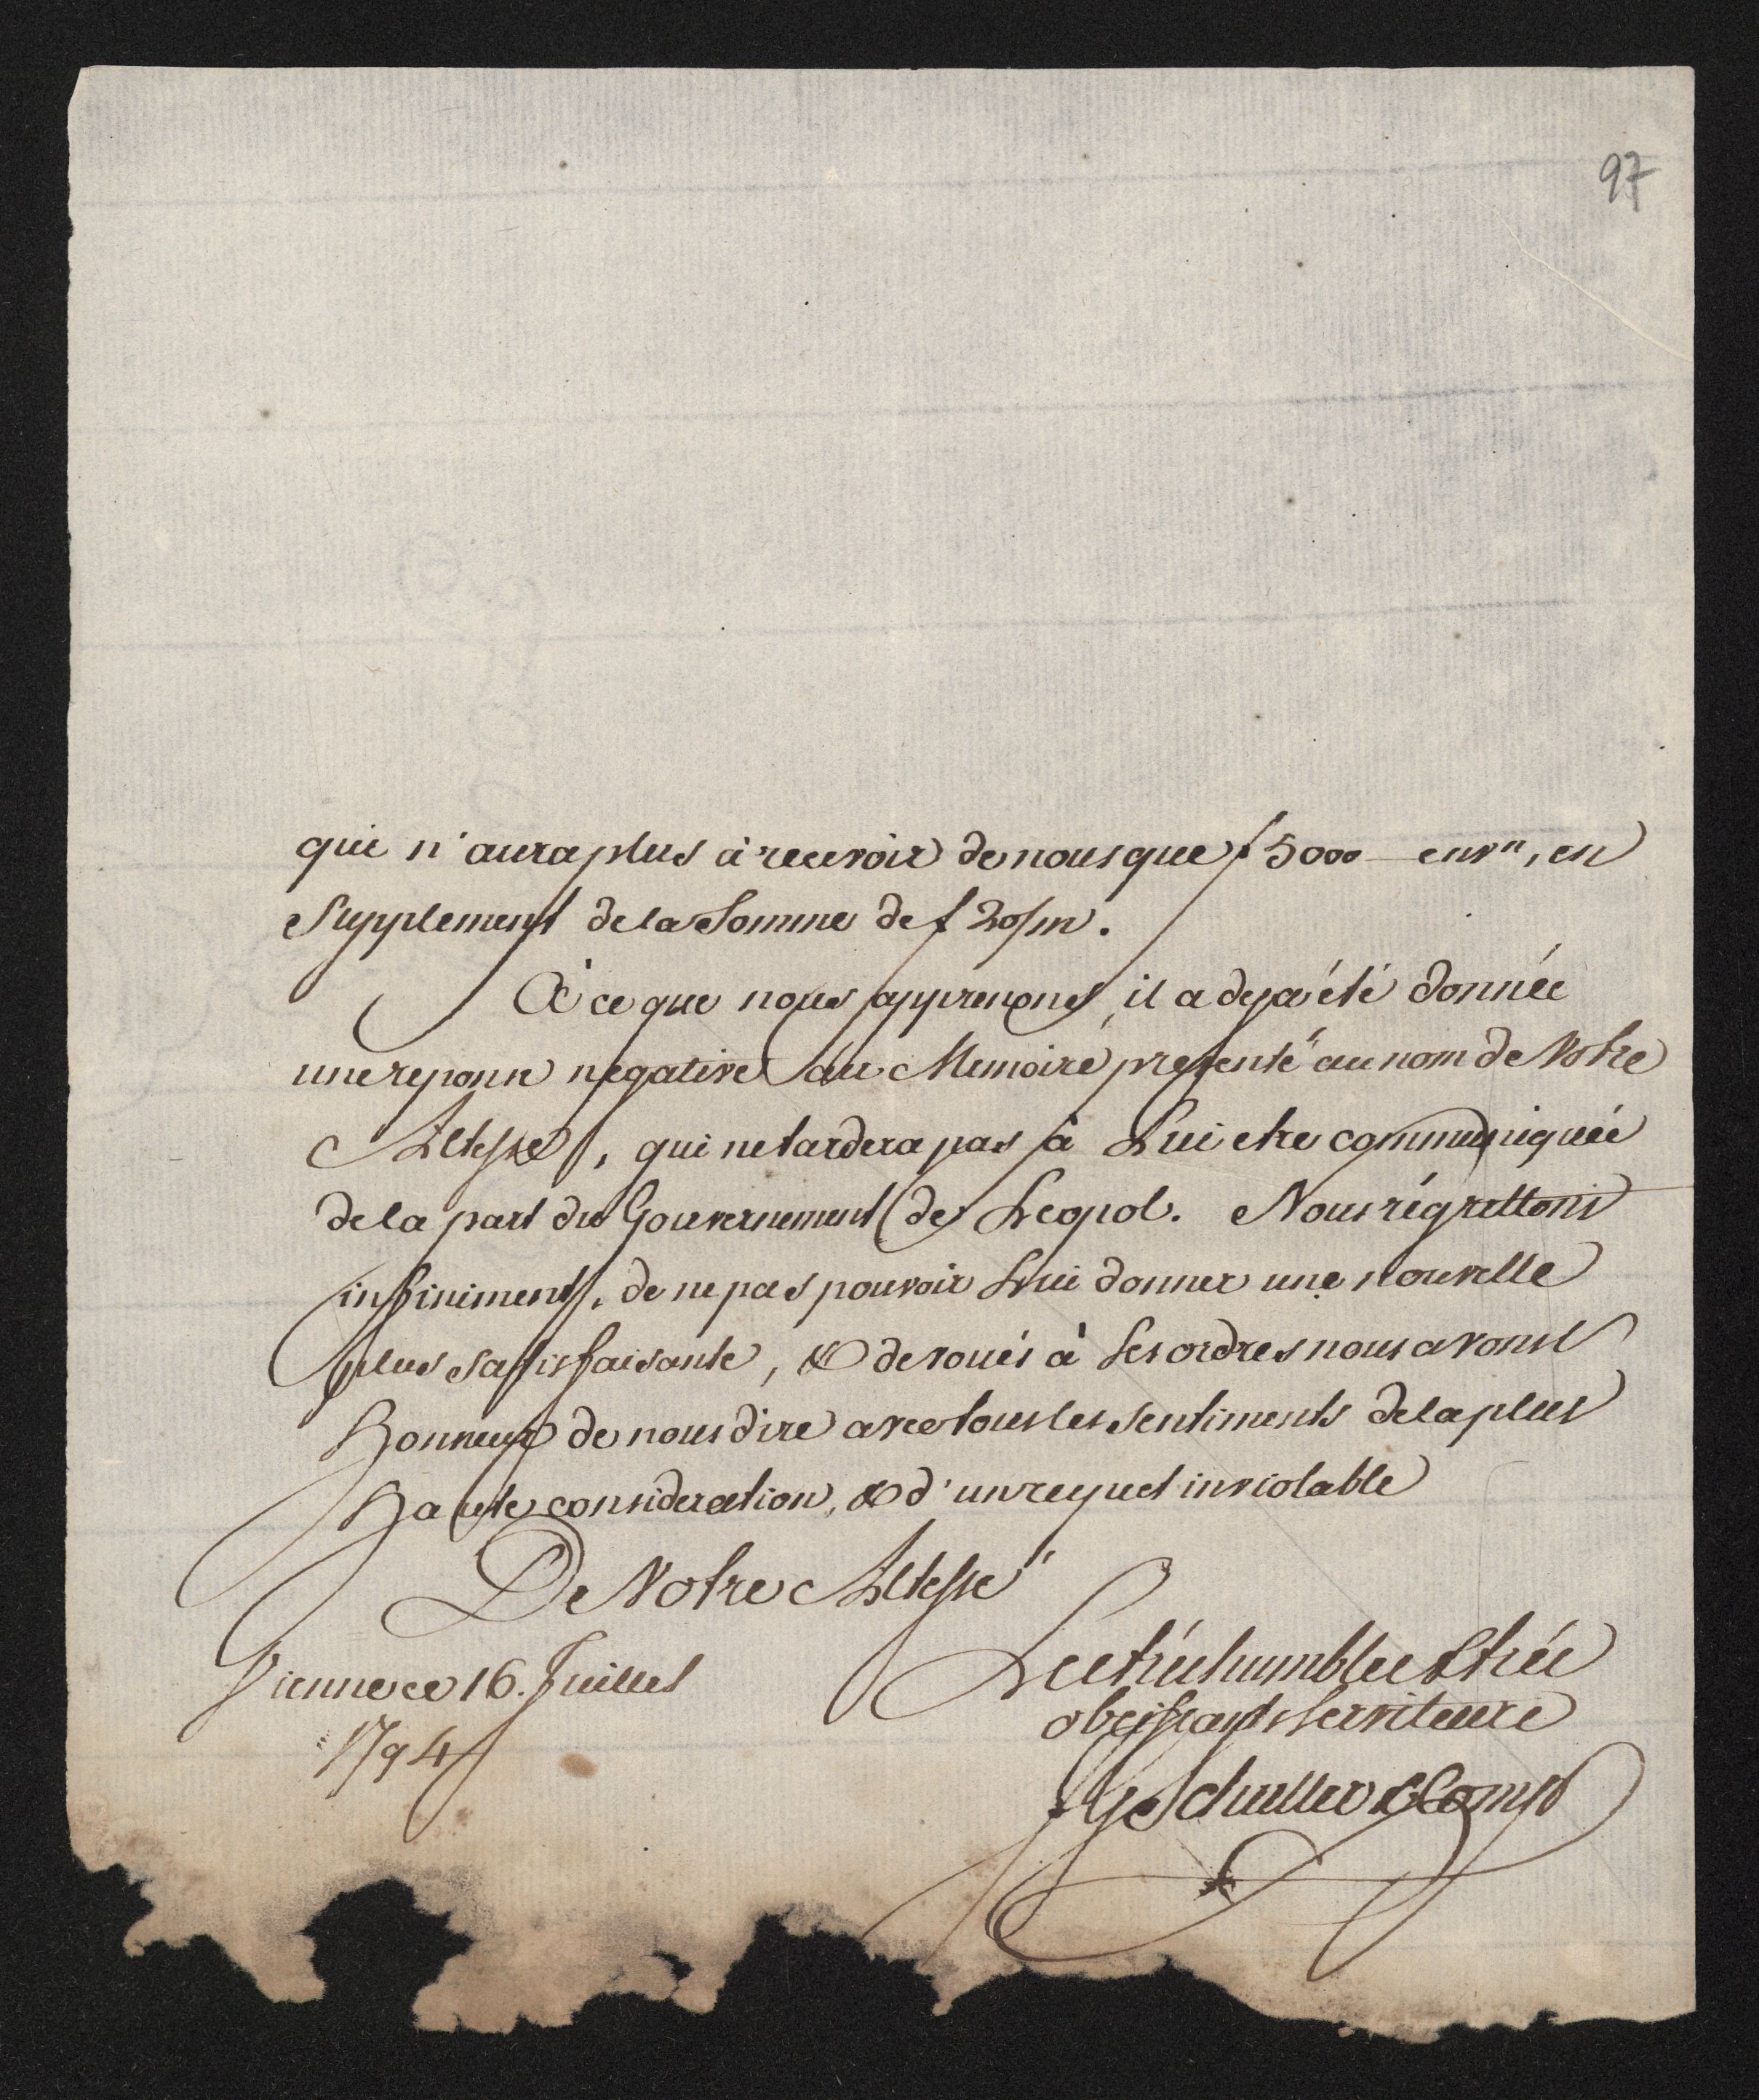 97
qui n'aura plus à recevoir de nous que f 5000 envn, en
Supplement de la Somme de f 20/m.
À ce que nous apprenons, il a deja été donnée
une reponse negative au Memoire presenté au nom de Votre
Altesse, qui ne tardera pas à Lui etre communiquée
de la part du Gouvernement de Leopol. Nous régrettons
infiniment, de ne pas pouvoir Lui donner une nouvelle
plus satisfaisante, & devoués à Ses ordres nous avons l
Honneur de nous dire avec tous les sentiments de la plus
Haute consideration, & d'un respect inviolable
De Votre Altesse
Vienne ce 16. Juillet
1794
Les très humbles & très
obeissants Serviteurs
Schuller & Comp